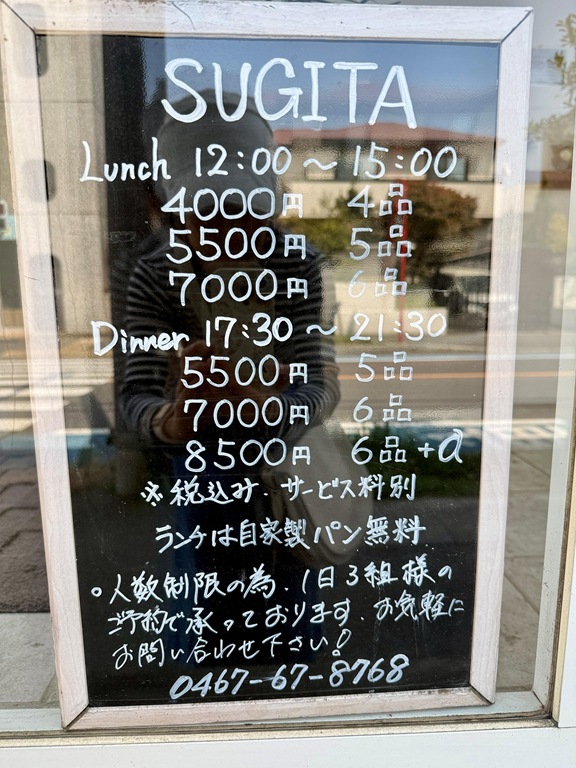 SUGITA
Lunch 12:00～15:00
4000円 4品
5500円 5品
7000円 6品
Dinner 17:30～21:30
5500円 5品
7000円 6品
8500円 6品+α
※税込み.サービス料別
ランチは自家製パン無料
○人数制限の為、1日3組様の
ご予約で承っております.お気軽に
お問い合わせ下さい!
0467-67-8768